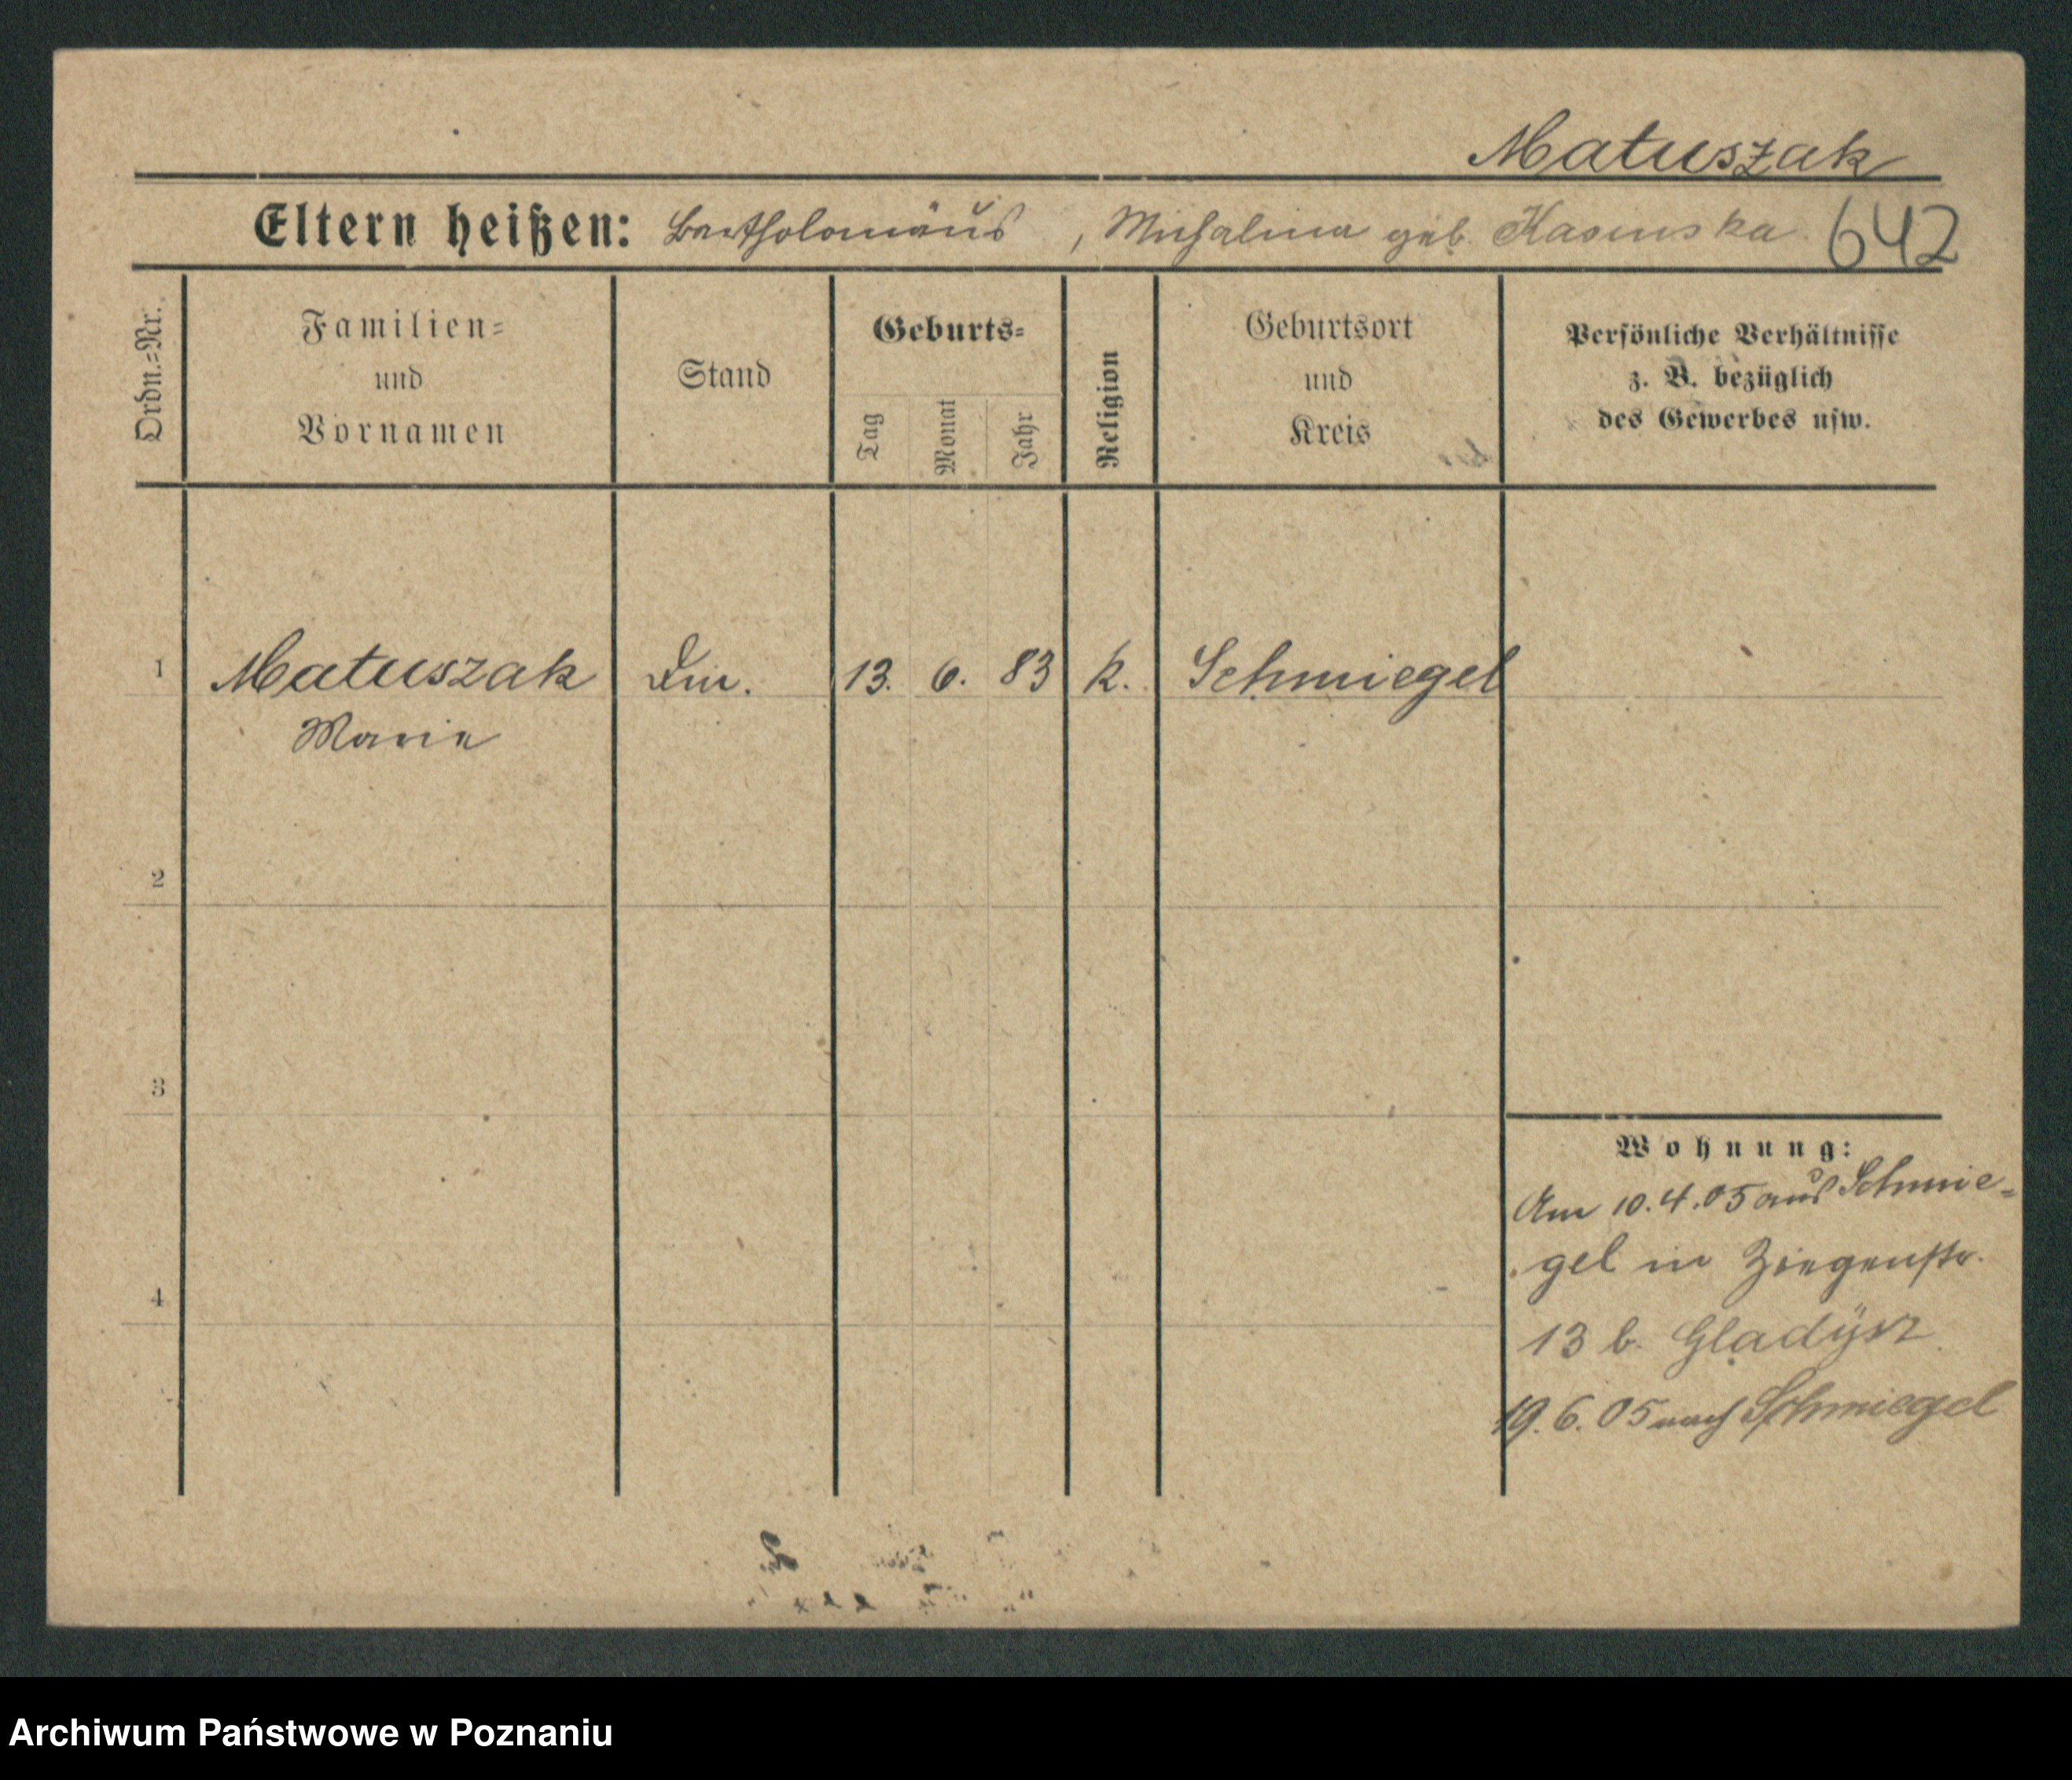 Matuszak
Eltern heißen: Bartholomäus, Michalina geb. Kasinska 642
Ordn.=Nr.
Familien=
und
Vornamen
Stand
Geburts=
Tag
Monat
Jahr
Religion
Geburtsort
und
Kreis
Persönliche Verhältnisse
z. B. bezüglich
des Gewerbes usw.
1 Matuszak 13. 6. 83 k. Schmiegel
Marie
2
3
Wohnung:
Am 10.4.05 aus Schmie-
gel in Ziegenstr.
4
13 b. Gladysz
19.6.05 nach Schmiegel
Archiwum Państwowe w Poznaniu